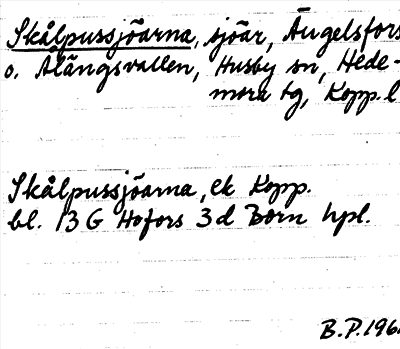 Skålpussjöarna, sjöar, Ängelsfors
o. Ålängsvallen, Husby sn, Hede-
mora tg, Kopp. l
Skålpussjöarna, ek Kopp.
bl. 13 G Hofors 3 d Born hpl.
B.P. 196